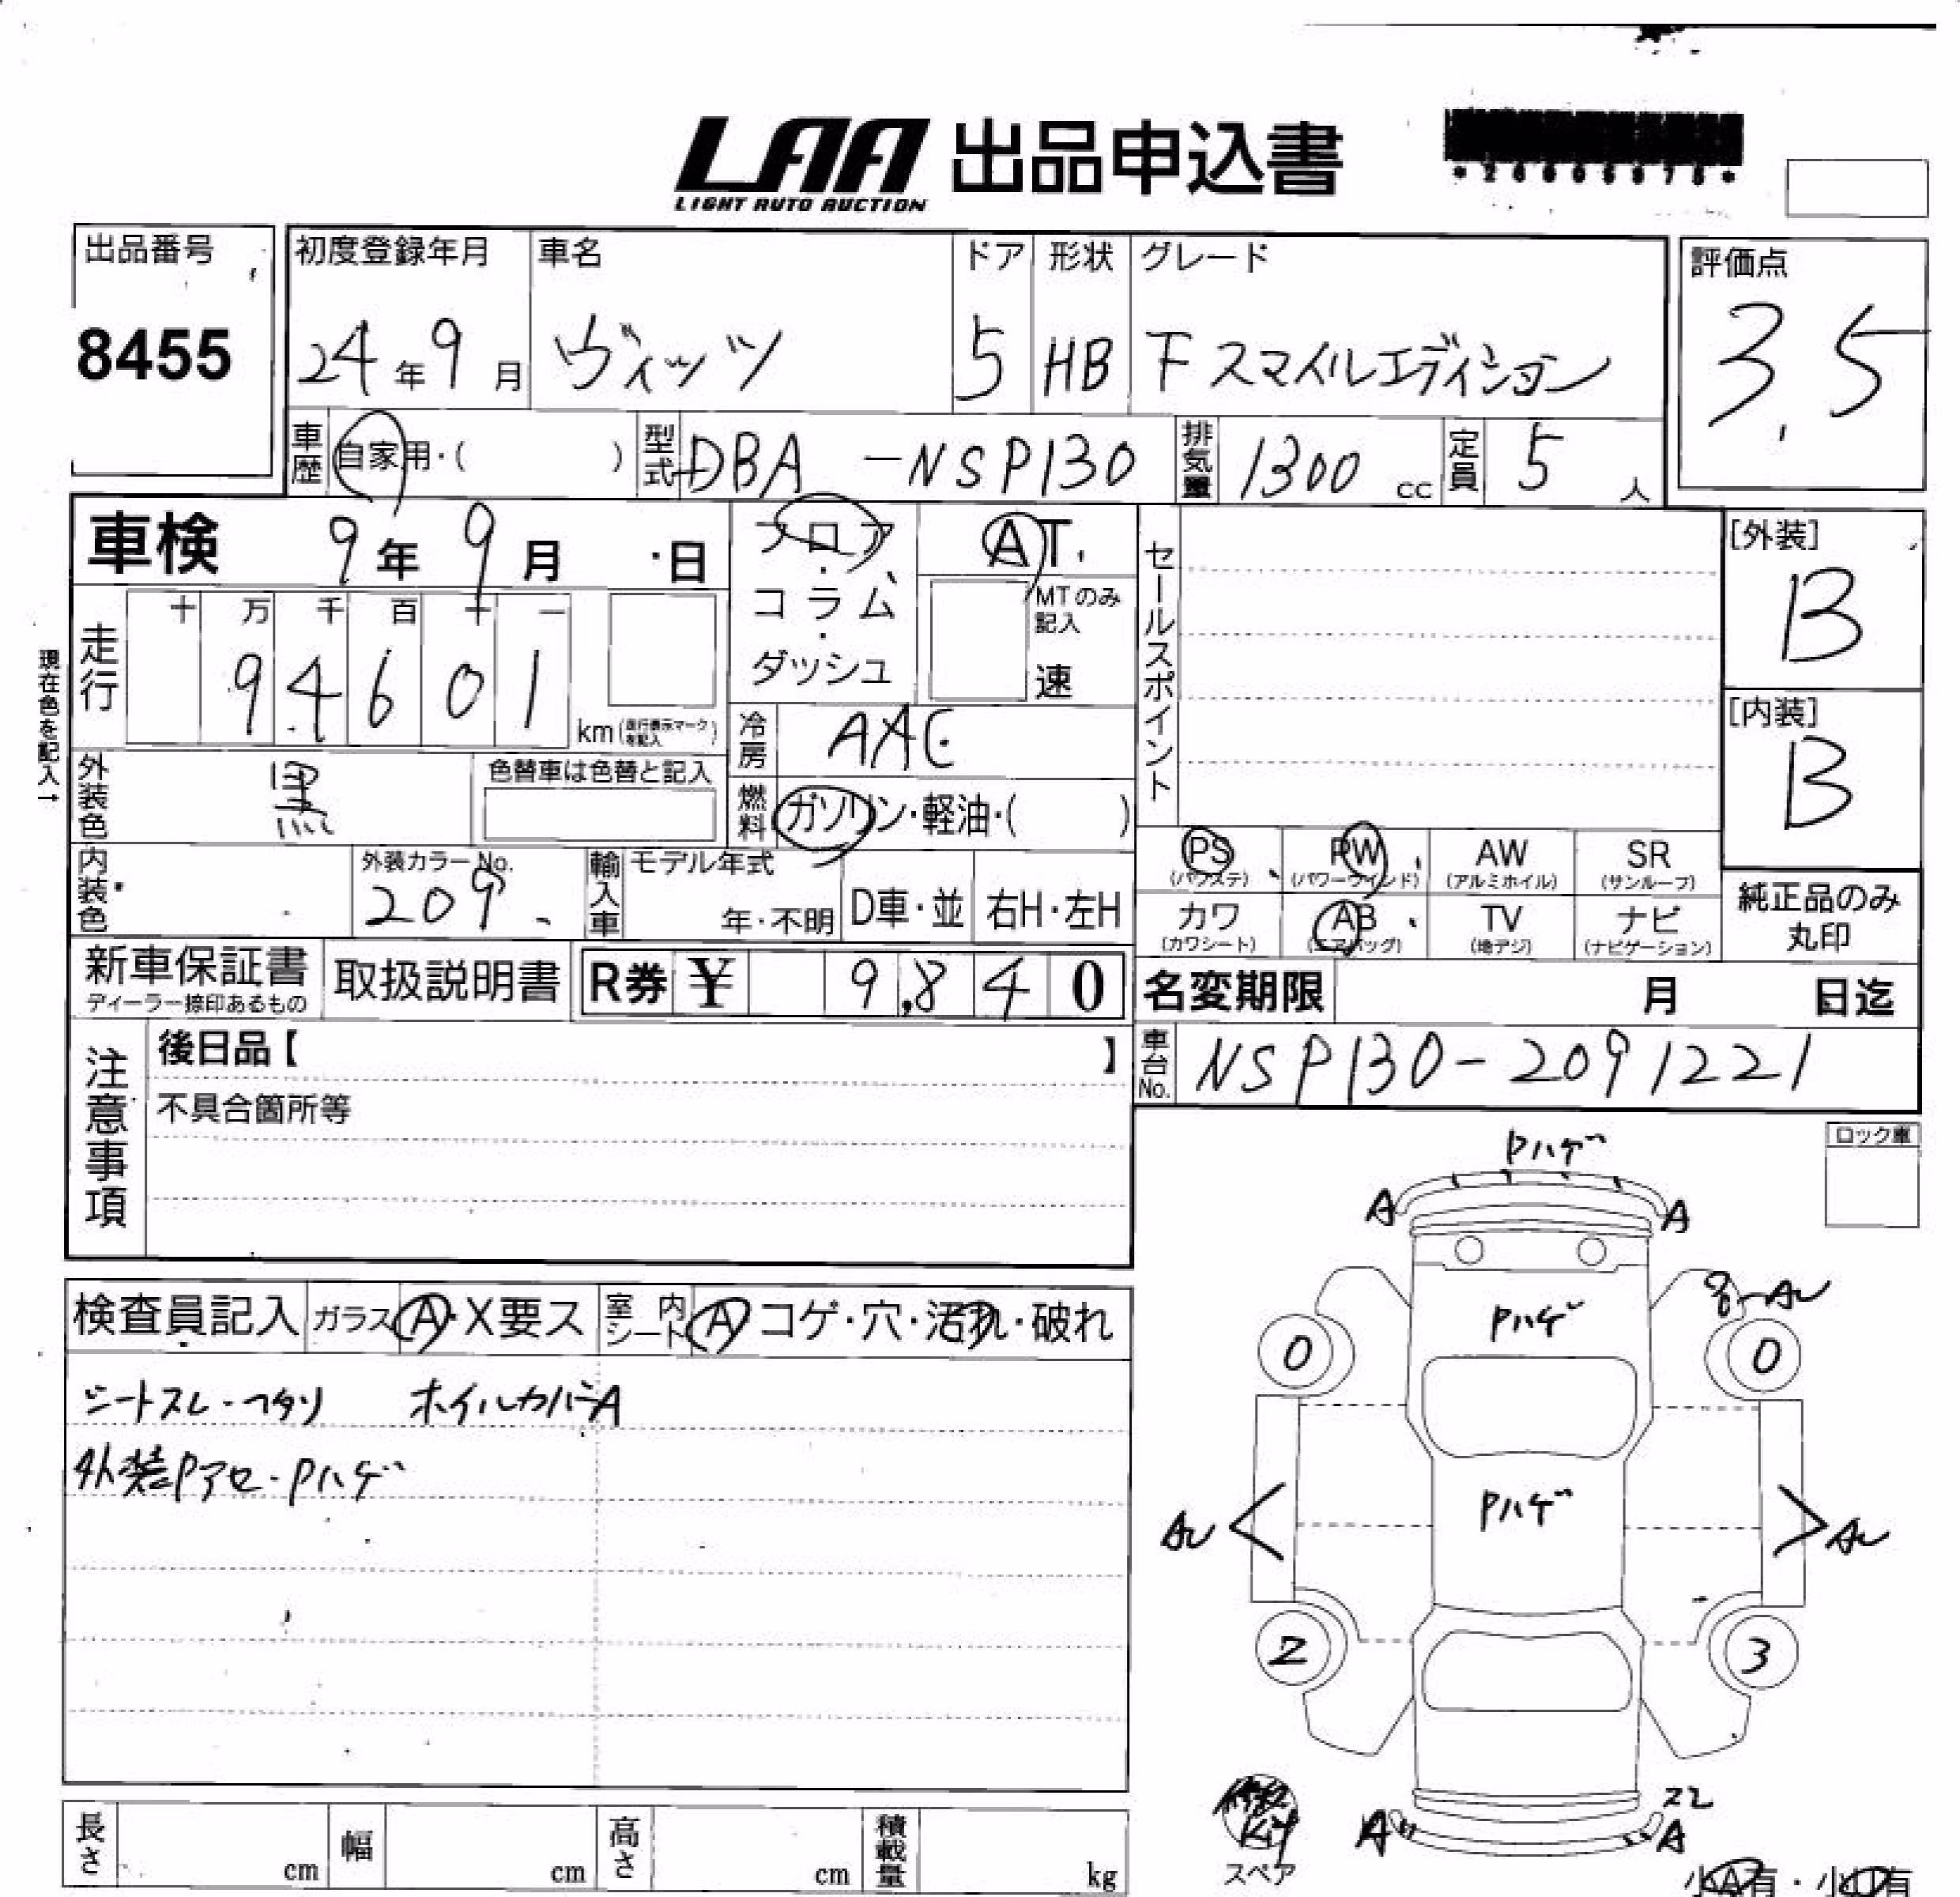 LAA 出品申込書
LIGHT AUTO AUCTION
出品番号 初度登録年月 車名 ドア 形状 グレード 評価点
8455 24年9月 ヴィッツ 5 HB F スマイルエディション 3.5
車歴 自家用・( ) 型式 DBA-NSP130 排気量 1300cc 定員 5人
車検 9年9月 日 フロア・コラム・ダッシュ AT セールスポイント [外装]
B
MTのみ記入 速
現在色を記入→
走行 十 万 千 百 十 一
94601 km(走行表示マークを記入) 冷房 AAC [内装]
B
外装色 黒 色替車は色替と記入 燃料 ガソリン・軽油・( )
PS PW AW SR
(パワステ) (パワーウインド) (アルミホイル) (サンルーフ)
内装色 外装カラーNo. 209 輸入車 モデル年式 年・不明 D車・並 右H・左H
カワ AB TV ナビ 純正品のみ丸印
(カワシート) (エアバッグ) (地デジ) (ナビゲーション)
新車保証書 取扱説明書 R券 ¥ 9,840 名変期限 月 日迄
ディーラー捺印あるもの
注意事項 後日品【 】 車台No. NSP130-2091221
不具合箇所等
ロック車
Pハゲ
A A
検査員記入 ガラス A・X要ス 室内シート A コゲ・穴・汚れ・破れ
Pハゲ
0 0
シートスレ・ヘタリ ホイルカバーA
外装Pアセ・Pハゲ
Pハゲ
2 3
Kit
スペア
スレ
A A
長さ cm 幅 cm 高さ cm 積載量 kg
小A有・小U有